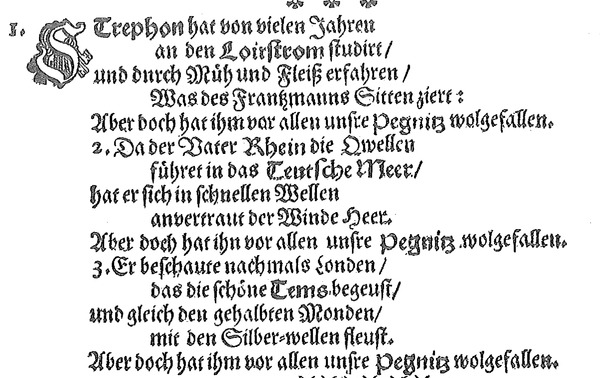 1. STrephon hat von vielen Jahren
an den Loirstrom studirt/
und durch Müh und Fleiß erfahren/
Was des Frantzmanns Sitten ziert:
Aber doch hat ihm vor allen unsre Pegnitz wolgefallen.
2. Da der Vater Rhein die Qwellen
führet in das Teutsche Meer/
hat er sich in schnellen Wellen
anvertraut der Winde Heer.
Aber doch hat ihn vor allen unsre Pegnitz wolgefallen.
3. Er beschaute nachmals Londen/
das die schöne Tems begeust/
und gleich den gehalbten Monden/
mit den Silber-wellen fleust.
Aber doch hat ihm vor allen unsre Pegnitz wolgefallen.